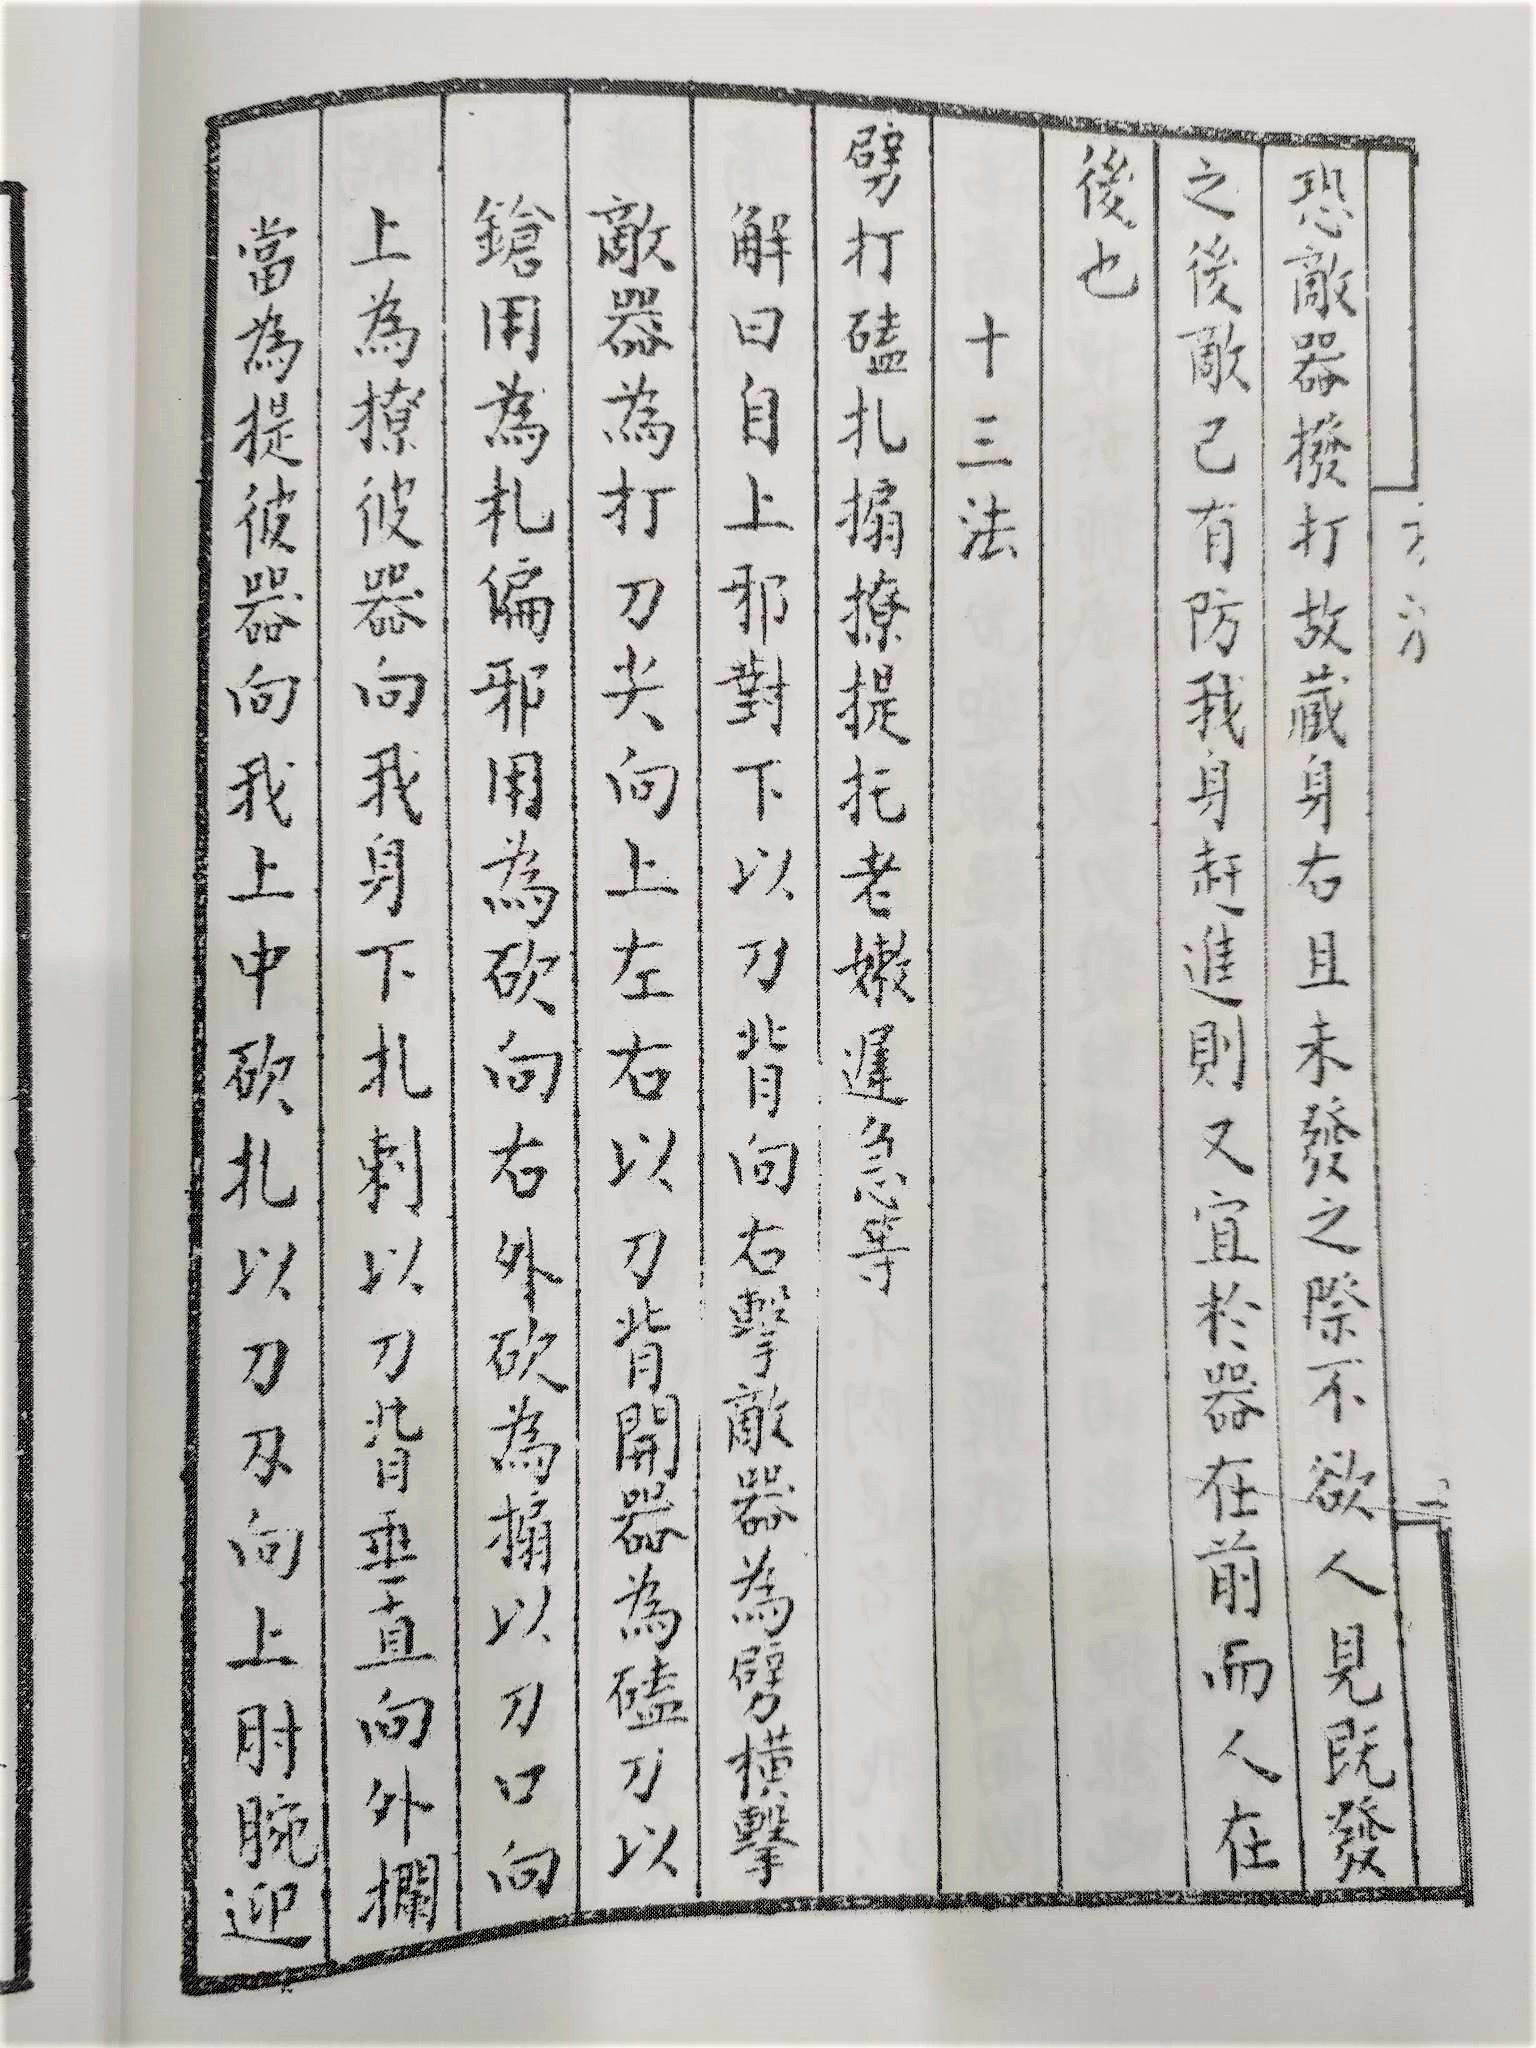 恐敵器撥打故藏身右且未發之際不欲人見既發
之後敵已有防我身赶進則又宜於器在前而人在
後也
十三法
劈打磕扎搧撩提托老嫩遲急等
解曰自上邪對下以刀背向右擊敵器為劈橫擊
敵器為打刀尖向上左右以刀背開器為磕刀以
鎗用為札偏邪用為砍向右外砍為搧以刀口向
上為撩彼器向我身下扎刺以刀背垂直向外攔
當為提彼器向我上中砍扎以刀刃向上肘腕迎
二